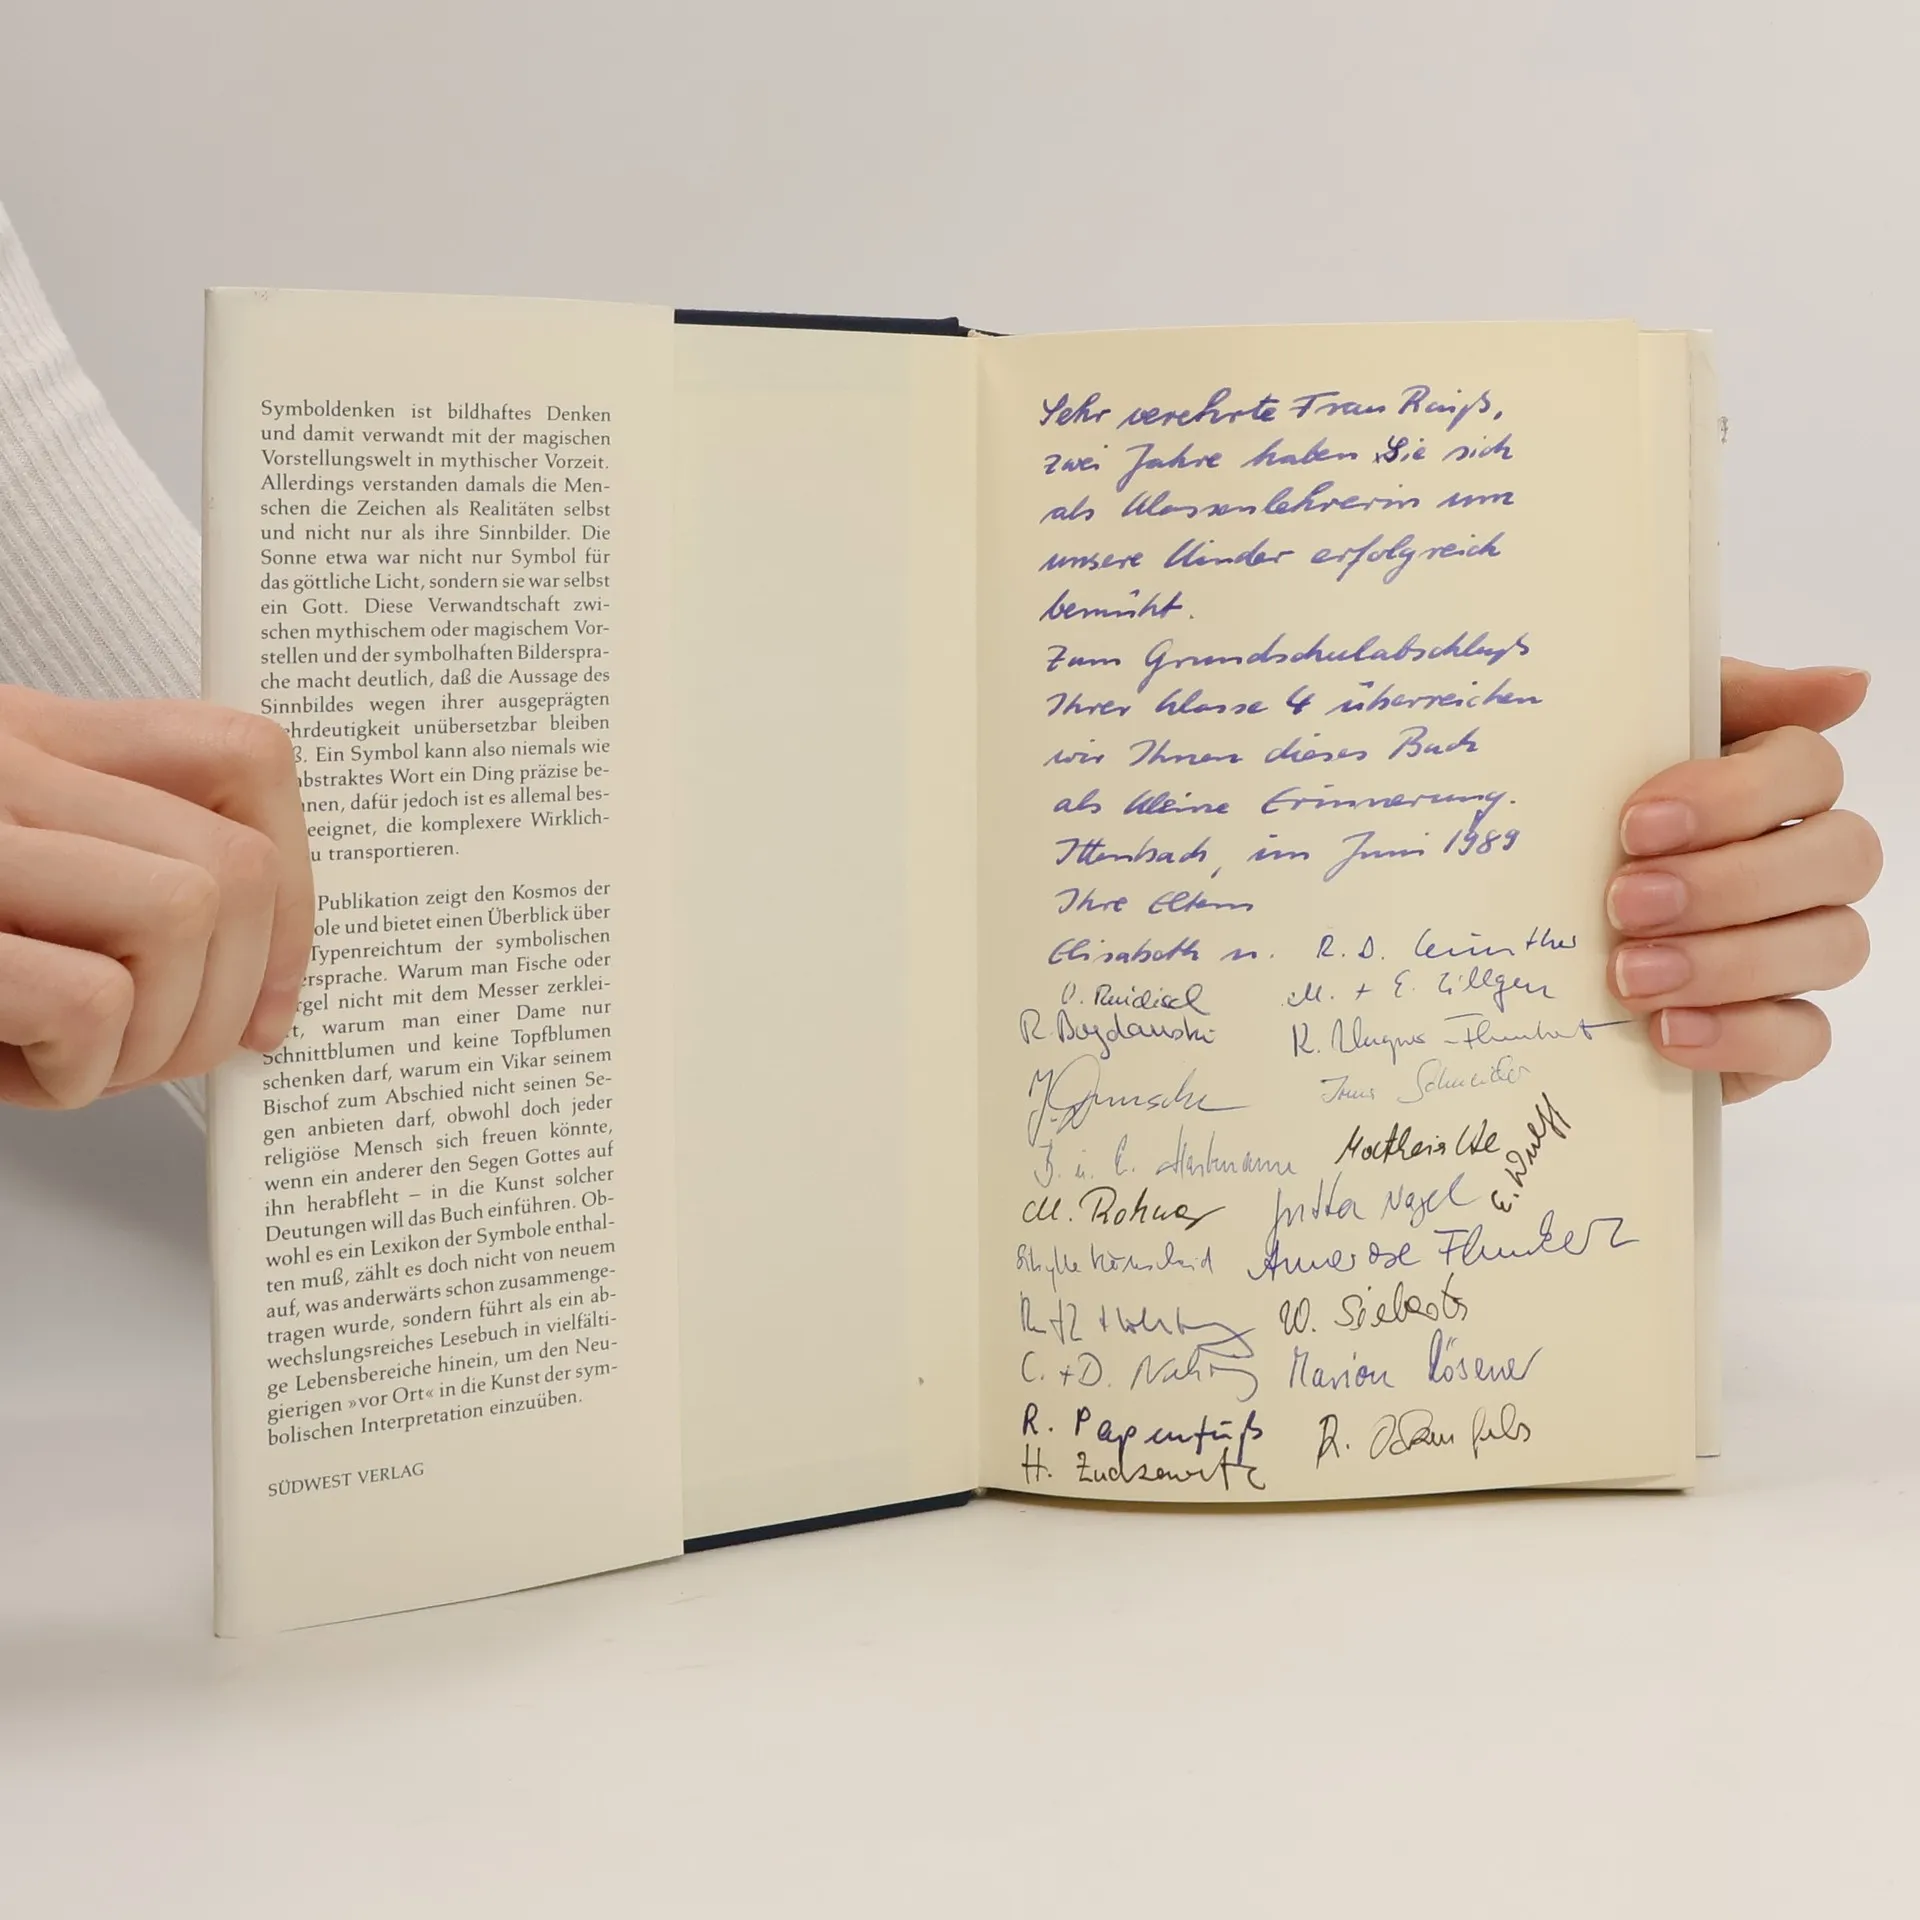 Symboldenken ist bildhaftes Denken
und damit verwandt mit der magischen
Vorstellungswelt in mythischer Vorzeit.
Allerdings verstanden damals die Men-
schen die Zeichen als Realitäten selbst
und nicht nur als ihre Sinnbilder. Die
Sonne etwa war nicht nur Symbol für
das göttliche Licht, sondern sie war selbst
ein Gott. Diese Verwandtschaft zwi-
schen mythischem oder magischem Vor-
stellen und der symbolhaften Bilderspra-
che macht deutlich, daß die Aussage des
Sinnbildes wegen ihrer ausgeprägten
ehrdeutigkeit unübersetzbar bleiben
ß. Ein Symbol kann also niemals wie
abstraktes Wort ein Ding präzise be-
nnen, dafür jedoch ist es allemal bes-
eeignet, die komplexere Wirklich-
u transportieren.
Publikation zeigt den Kosmos der
ole und bietet einen Überblick über
Typenreichtum der symbolischen
ersprache. Warum man Fische oder
rgel nicht mit dem Messer zerklei-
rt, warum man einer Dame nur
Schnittblumen und keine Topfblumen
schenken darf, warum ein Vikar seinem
Bischof zum Abschied nicht seinen Se-
gen anbieten darf, obwohl doch jeder
religiöse Mensch sich freuen könnte,
wenn ein anderer den Segen Gottes auf
ihn herabfleht – in die Kunst solcher
Deutungen will das Buch einführen. Ob-
wohl es ein Lexikon der Symbole enthal-
ten muß, zählt es doch nicht von neuem
auf, was anderwärts schon zusammenge-
tragen wurde, sondern führt als ein ab-
wechslungsreiches Lesebuch in vielfälti-
ge Lebensbereiche hinein, um den Neu-
gierigen »vor Ort« in die Kunst der sym-
bolischen Interpretation einzuüben.
SÜDWEST VERLAG
Sehr verehrte Frau
zwei Jahre haben Sie sich
als Klassenlehrerin um
unsere Kinder erfolgreich
bemüht.
Zum Grundschulabschluß
Ihrer Klasse 4 überreichen
wir Ihnen dieses Buch
als kleine Erinnerung.
Ittenbach, im Juni 1989
Ihre Eltern
Elisabeth u. R. D. Günther
M. + E. Zillgen
R. Bogdanski
Schneider
B. u. C. Hartmann
E. Wulff
M. Rohner Jutta Nagel
Annerose
W. Sieberts
C. + D. Marion Kösener
R. Papenfuß R.
H.